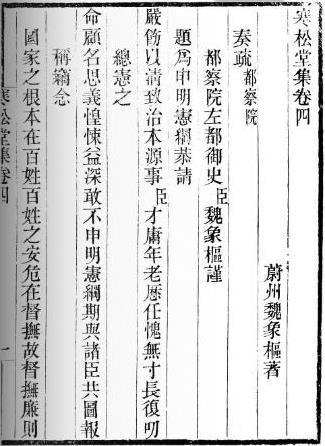 寒松堂集卷四
蔚州魏象樞著
奏疏都察院
都察院左都御史臣魏象樞謹
題爲申明憲綱恭請
嚴飭以清致治本源事臣才庸年老歷任愧無寸長復叨
總憲之
命顧名思義惶悚益深敢不申明憲綱期與諸臣共圖報
稱竊念
國家之根本在百姓百姓之安危在督撫故督撫廉則
寒松堂集卷四
一